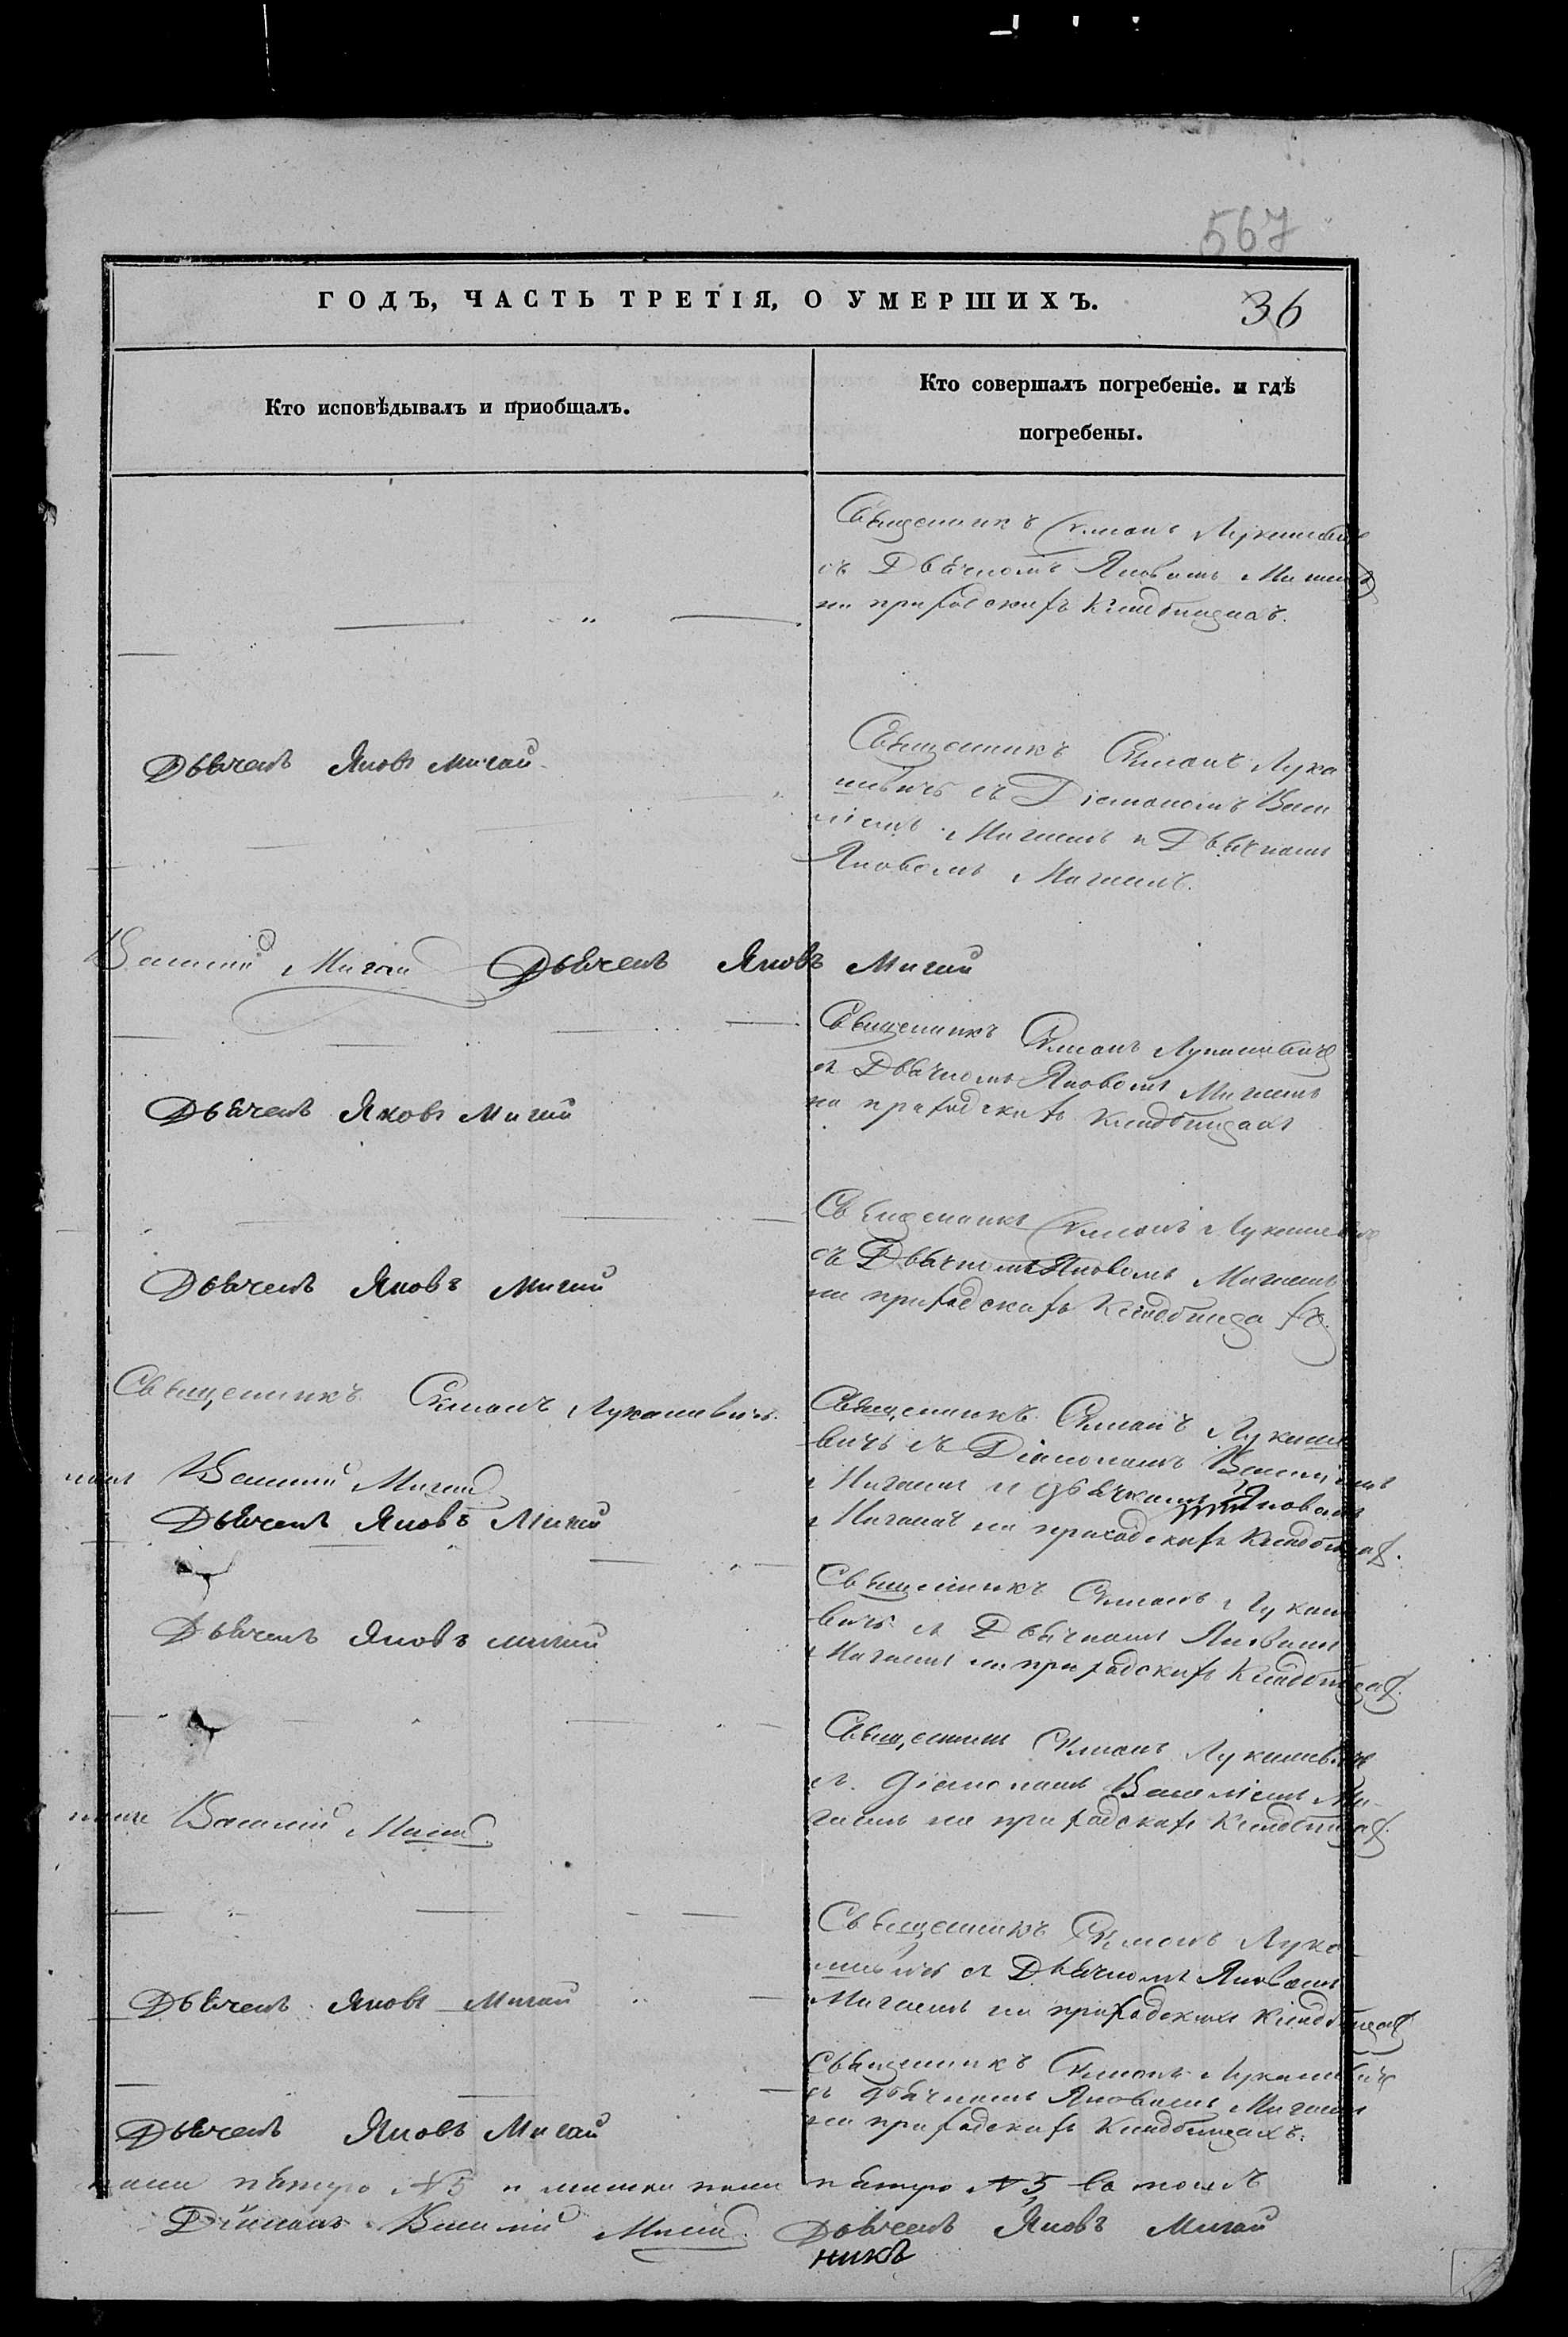 567
ГОДЪ, ЧАСТЬ ТРЕТІЯ, О УМЕРШИХЪ.
36
Кто исповѣдывалъ и приобщалъ.
Кто совершалъ погребеніе. и гдѣ
погребены.
Священникъ Симонъ Лукашевичъ
съ Дьячкомъ Яковомъ Мигаемъ
на приходскихъ кладбищахъ.
Дьячекъ Яковъ Мигай
Священникъ Симонъ Лука
шевичъ съ Діакономъ Васи
ліемъ Мигаемъ и Дьячкомъ
Яковомъ Мигаемъ.
Василій Мигай Дьячекъ Яковъ Мигай
Священникъ Симонъ Лукашевичъ
съ Дьячкомъ Яковомъ Мигаемъ
на приходскихъ кладбищахъ
Дьячекъ Яковъ Мигай
Священникъ Симонъ Лукашевичъ
съ Дьячкомъ Яковомъ Мигаемъ
на приходскихъ кладбищахъ.
Дьячекъ Яковъ Мигай
Священникъ Симонъ Лукашевичъ.
Священникъ Симонъ Лукаше
вичъ съ Діакономъ Василіемъ
Мигаемъ и дьячкомъ Яковомъ
Мигаемъ на приходскихъ кладбищахъ.
Василій Мигай
Дьячекъ Яковъ Мигай
Священникъ Симонъ Лукаше
вичъ съ Дьячкомъ Яковомъ
Мигаемъ на приходскихъ кладбищахъ.
Дьячекъ Яковъ Мигай
Священникъ Симонъ Лукашевичъ
съ Діакономъ Василіемъ Ми-
гаемъ на приходскихъ кладбищахъ.
Василій Мигай
Священникъ Симонъ Лука
шевичъ съ Дьячкомъ Яковомъ
Мигаемъ на приходскихъ кладбищахъ
Дьячекъ Яковъ Мигай
Священникъ Симонъ Лукашевичъ
съ дьячкомъ Яковомъ Мигаемъ
на приходскихъ кладбищахъ.
Дьячекъ Яковъ Мигай
№ 5 и № 5
Діаконъ Василій Мигай. Дьячекъ Яковъ Мигай
никъ